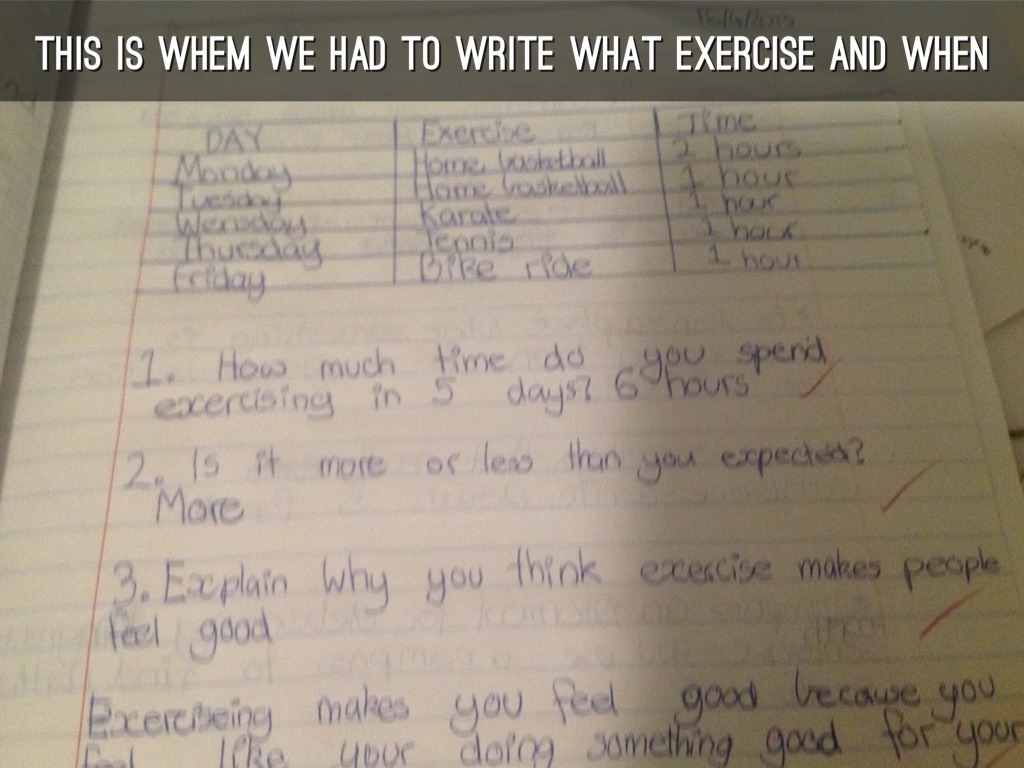 THIS IS WHEM WE HAD TO WRITE WHAT EXERCISE AND WHEN
DAY Exercise Time
Monday Home basketball 2 hours
Tuesday Home basketball 1 hour
Wensday Karate 1 hour
Thursday Tennis 1 hour
Friday Bike ride 1 hour
1. How much time do you spend
exercising in 5 days? 6 hours
2. Is it more or less than you expected?
More
3. Explain why you think exercise makes people
feel good
Exerciseing makes you feel good because you
feel like your doing something good for your